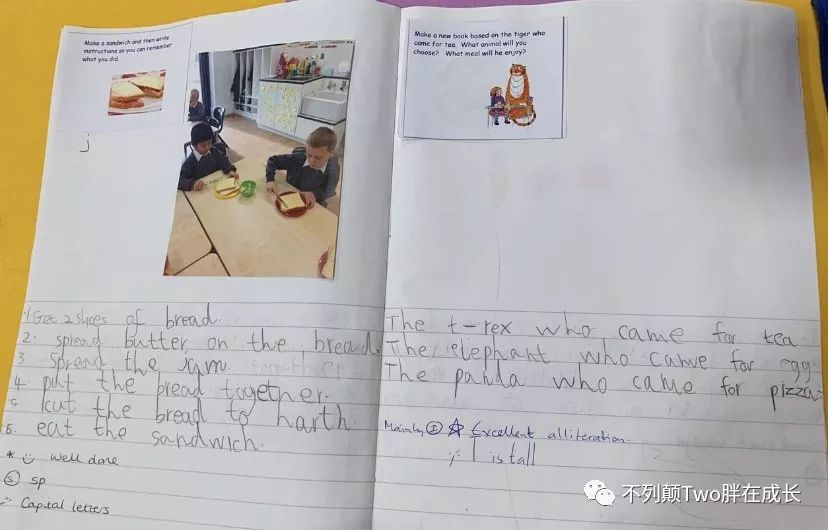 Make a sandwich and then write
instructions so you can remember
what you did.
j
1. Get 2 slices of bread.
2. spread butter on the bread.
3 spread the jam together
4. put the bread together.
5 kut the bread to harth.
6. eat the sandwich.
* well done
S sp
Capital letters
Make a new book based on the tiger who
came for tea. What animal will you
choose? What meal will he enjoy?
The t-rex who came for tea
The elephant who came for egg
The panda who came for pizza
Mainly I Excellent alliteration.
l is tall
不列颠Two胖在成长